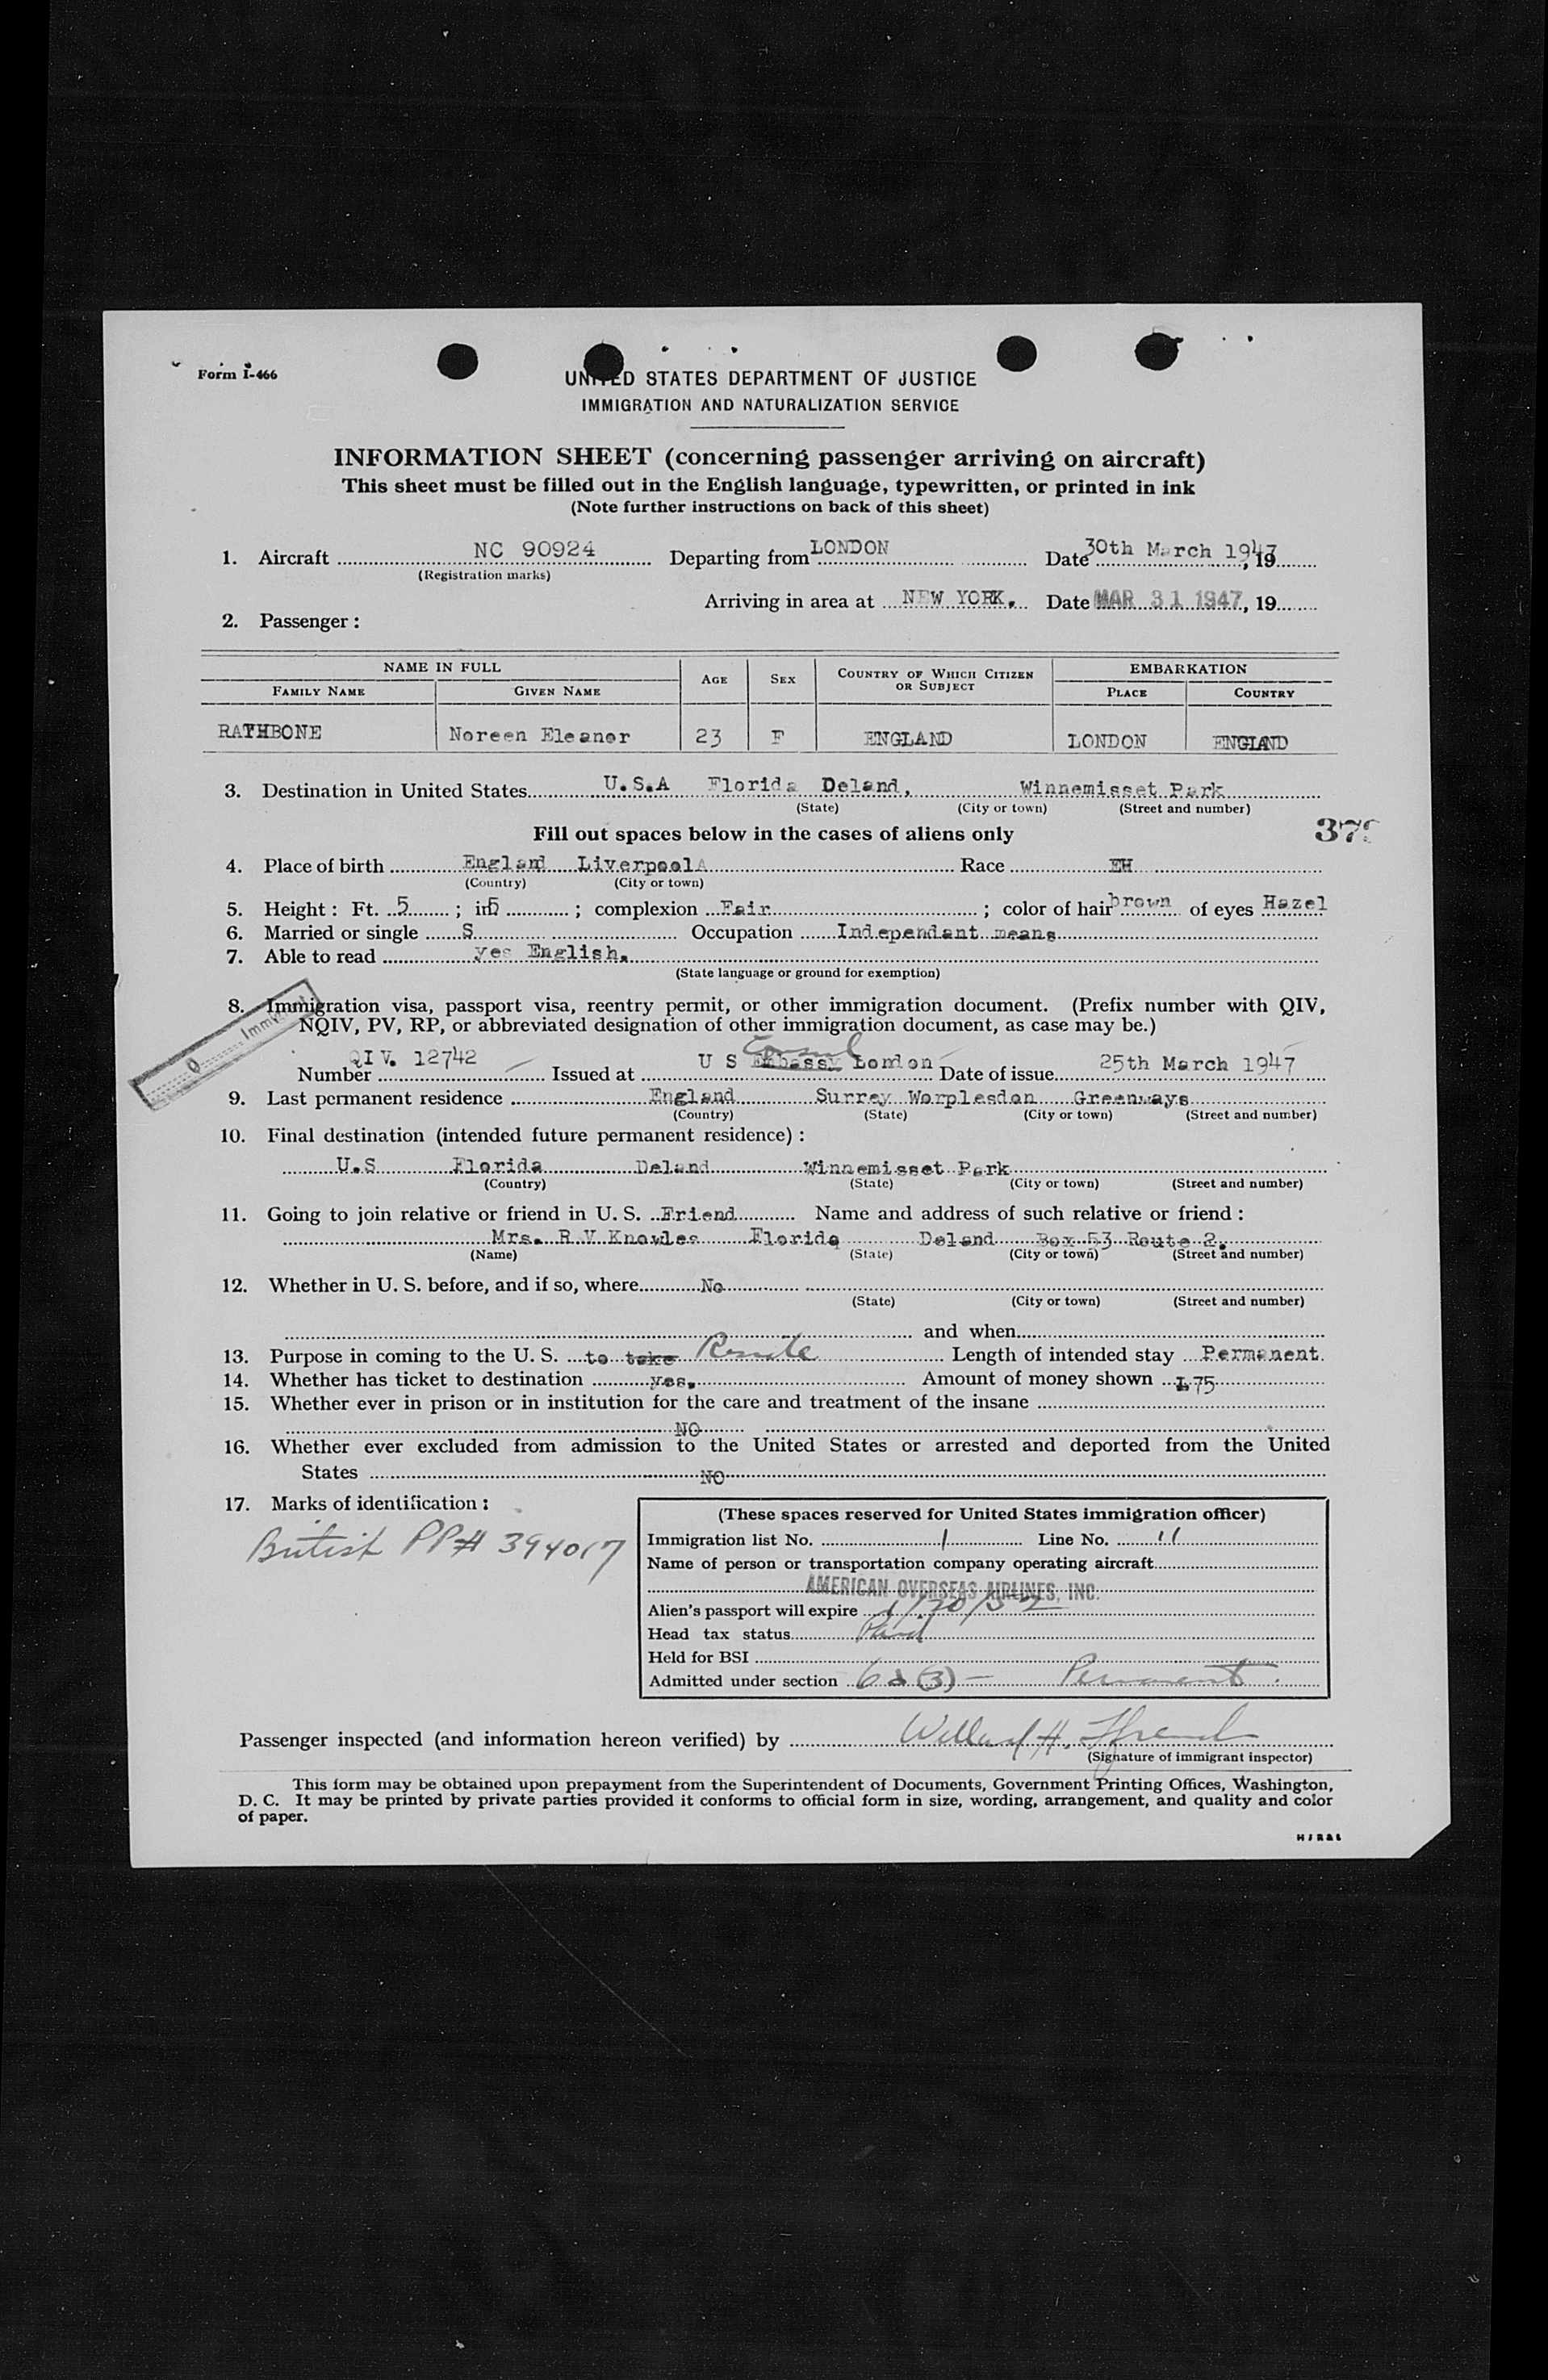 Form I-466
UNITED STATES DEPARTMENT OF JUSTICE
IMMIGRATION AND NATURALIZATION SERVICE
INFORMATION SHEET (concerning passenger arriving on aircraft)
This sheet must be filled out in the English language, typewritten, or printed in ink
(Note further instructions on back of this sheet)
1. Aircraft NC 90924 Departing from LONDON Date 30th March 1947, 19
(Registration marks)
Arriving in area at NEW YORK. Date MAR 31 1947, 19
2. Passenger :
NAME IN FULL AGE SEX COUNTRY OF WHICH CITIZEN OR SUBJECT EMBARKATION
FAMILY NAME GIVEN NAME PLACE COUNTRY
RATHBONE Noreen Eleanor 23 F ENGLAND LONDON ENGLAND
3. Destination in United States U.S.A Florida Deland, Winnemisset Park
(State) (City or town) (Street and number)
Fill out spaces below in the cases of aliens only
4. Place of birth England Liverpool Race EH
(Country) (City or town)
5. Height : Ft. 5 ; in 5 ; complexion Fair ; color of hair brown of eyes Hazel
6. Married or single S Occupation Independant means
7. Able to read yes English.
(State language or ground for exemption)
8. Immigration visa, passport visa, reentry permit, or other immigration document. (Prefix number with QIV,
NQIV, PV, RP, or abbreviated designation of other immigration document, as case may be.)
Consul
Number QIV. 12742 Issued at U S Embassy London Date of issue 25th March 1947
9. Last permanent residence England Surrey Worplesdon Greenways
(Country) (State) (City or town) (Street and number)
10. Final destination (intended future permanent residence) :
U.S Florida Deland Winnemisset Park
(Country) (State) (City or town) (Street and number)
11. Going to join relative or friend in U. S. Friend Name and address of such relative or friend :
Mrs. R V Knowles Florida Deland Box 53 Route 2.
(Name) (State) (City or town) (Street and number)
12. Whether in U. S. before, and if so, where No
(State) (City or town) (Street and number)
and when
13. Purpose in coming to the U. S. to take Reside Length of intended stay Permanent
14. Whether has ticket to destination yes. Amount of money shown £75
15. Whether ever in prison or in institution for the care and treatment of the insane
NO
16. Whether ever excluded from admission to the United States or arrested and deported from the United
States NO
17. Marks of identification :
British PP# 394017
(These spaces reserved for United States immigration officer)
Immigration list No. 1 Line No. 11
Name of person or transportation company operating aircraft
AMERICAN OVERSEAS AIRLINES, INC.
Alien's passport will expire 1/20/52
Head tax status Paid
Held for BSI
Admitted under section 6a (3) — Permanent.
Passenger inspected (and information hereon verified) by Willard H.
(Signature of immigrant inspector)
This form may be obtained upon prepayment from the Superintendent of Documents, Government Printing Offices, Washington,
D. C. It may be printed by private parties provided it conforms to official form in size, wording, arrangement, and quality and color
of paper.